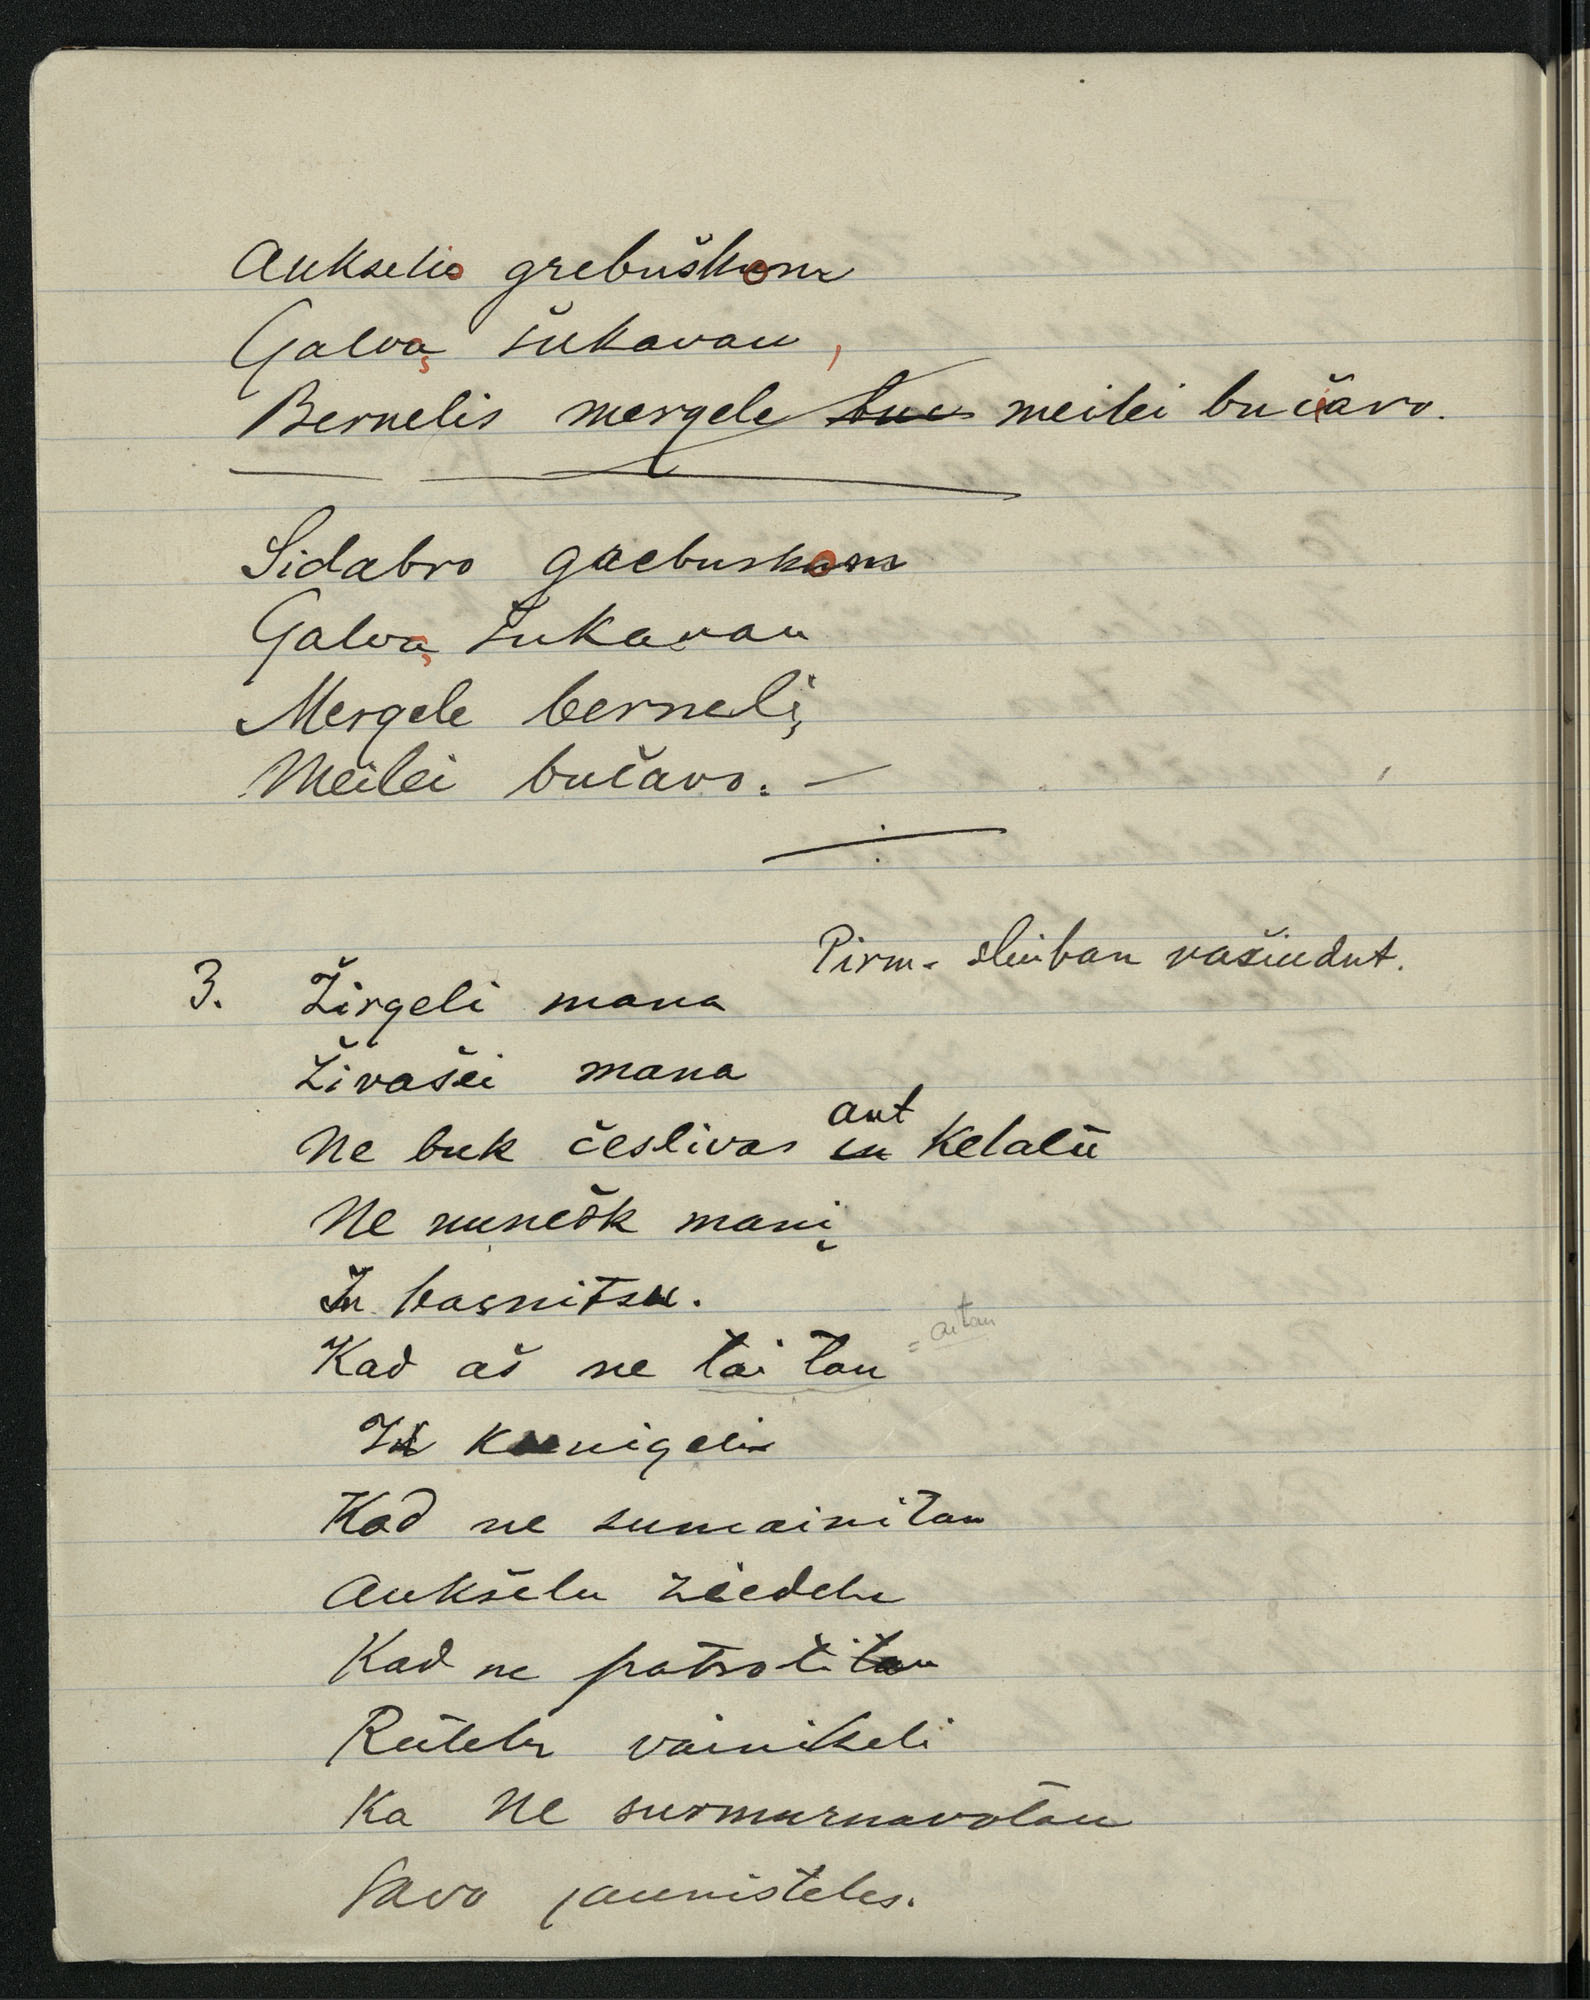 Aukselio grebuškom
Galvą šukavau,
Bernelis mergele meilei bučavo.
Sidabro grebuskom
Galvą šukavau
Mergele bernelį
Meilei bučavo. —
Pirm. sliuban važiudut.
3. Žirgeli mana
Živašei mana
Ne buk česlivas ant Kelalü
Ne nunešk manį
In basnitsu.
Kad aš ne tai tau = aitau
In kunigeli
Kad ne sumainitau
Aukšelu ziedelu
Kad ne patrotitau
Rütelu vainikeli
Ka Ne surmurnavotau
Savo jaunisteles.